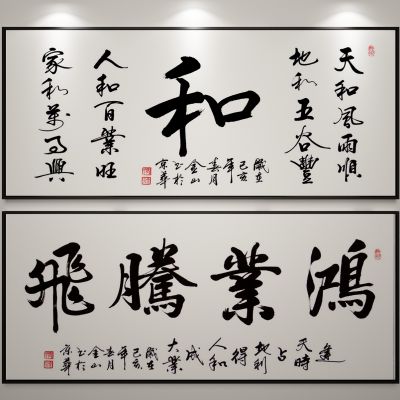 天和風雨順
地和五谷豐
和
人和百業旺
家和萬事興
歲在己亥年春月金山书於京華
鴻業騰飛
逢天時占地利得人和成大業
歲在己亥年春月金山书於京華